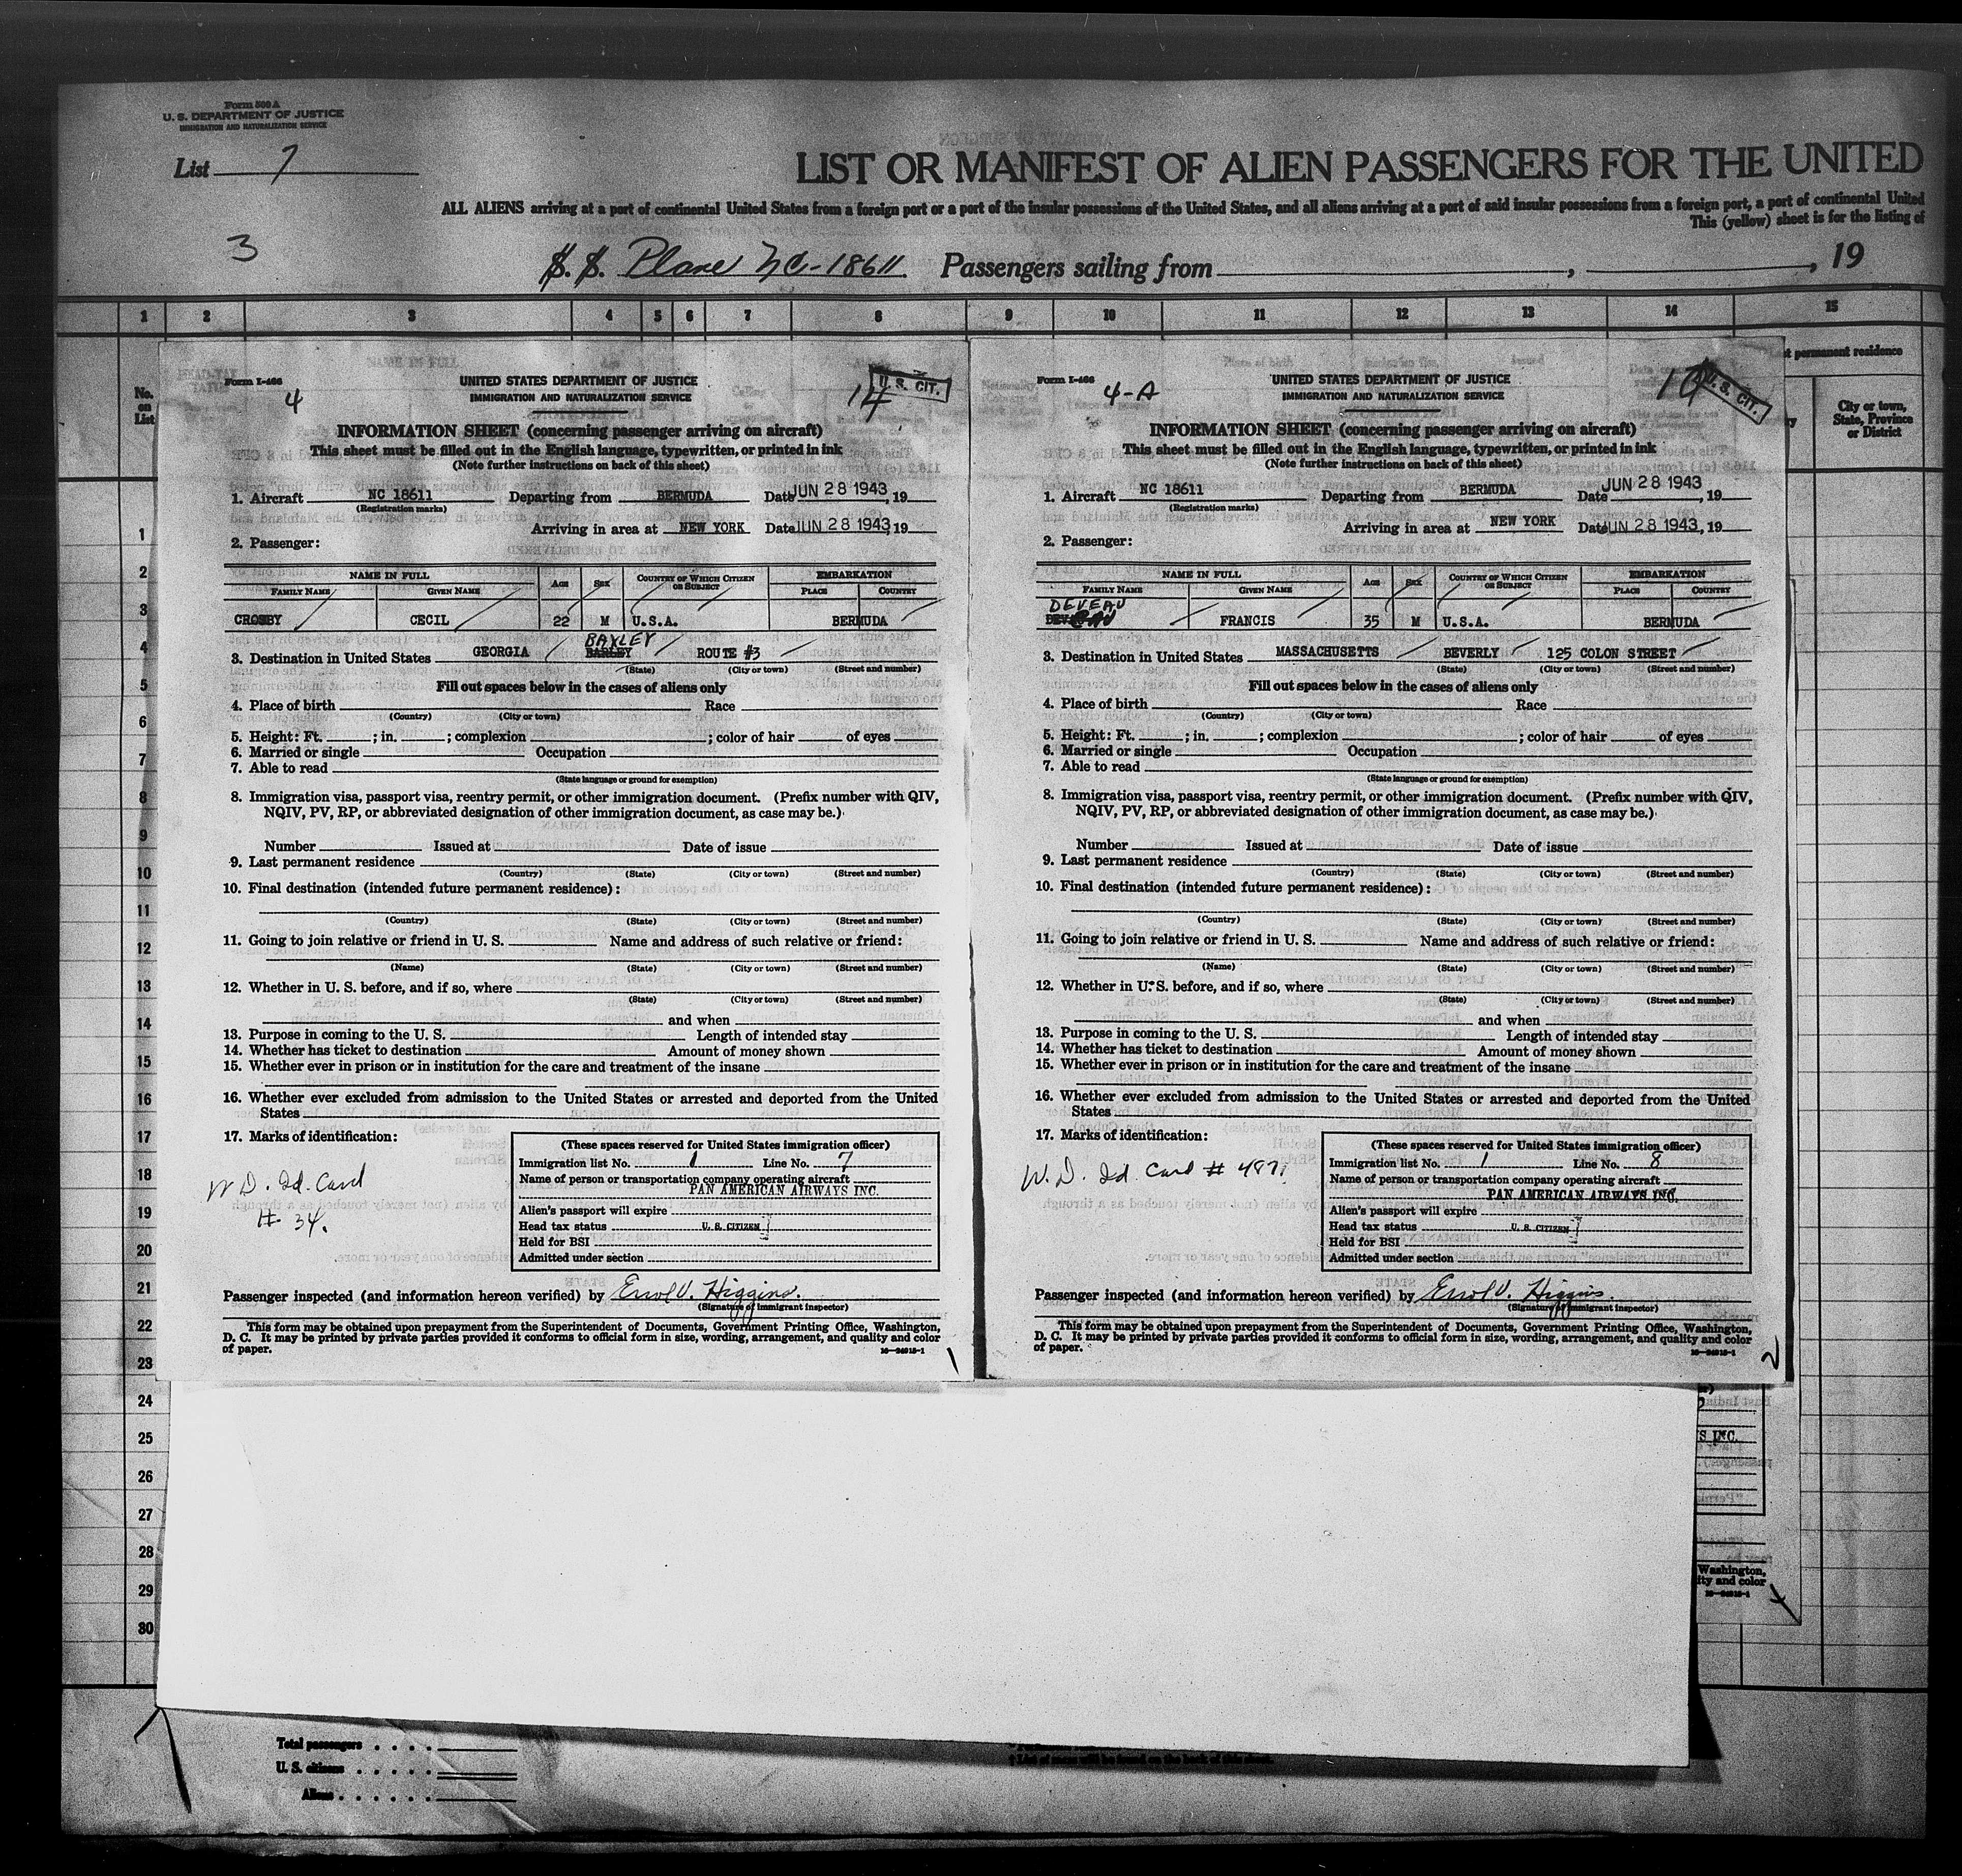 Form 500 A
U. S. DEPARTMENT OF JUSTICE
IMMIGRATION AND NATURALIZATION SERVICE
List 7
LIST OR MANIFEST OF ALIEN PASSENGERS FOR THE UNITED
ALL ALIENS arriving at a port of continental United States from a foreign port or a port of the insular possessions of the United States, and all aliens arriving at a port of said insular possessions from a foreign port, a port of continental United
This (yellow) sheet is for the listing of
3
S. S. Plane NC-18611 Passengers sailing from , , 19
1 2 3 4 5 6 7 8 9 10 11 12 13 14 15
permanent residence
No. on List
City or town, State, Province or District
1
2
3
4
5
6
7
8
9
10
11
12
13
14
15
16
17
18
19
20
21
22
23
24
25
26
27
28
29
30
Form I-466
4
UNITED STATES DEPARTMENT OF JUSTICE
IMMIGRATION AND NATURALIZATION SERVICE
U. S. CIT.
INFORMATION SHEET (concerning passenger arriving on aircraft)
This sheet must be filled out in the English language, typewritten, or printed in ink
(Note further instructions on back of this sheet)
1. Aircraft NC 18611 Departing from BERMUDA Date JUN 28 1943, 19
(Registration marks)
Arriving in area at NEW YORK Date JUN 28 1943, 19
2. Passenger:
NAME IN FULL AGE SEX COUNTRY OF WHICH CITIZEN OR SUBJECT EMBARKATION
FAMILY NAME GIVEN NAME PLACE COUNTRY
CROSBY CECIL 22 M U.S.A. BERMUDA
BAXLEY
3. Destination in United States GEORGIA BARLEY ROUTE #3
(State) (City or town) (Street and number)
Fill out spaces below in the cases of aliens only
4. Place of birth Race
(Country) (City or town)
5. Height: Ft. ; in. ; complexion ; color of hair of eyes
6. Married or single Occupation
7. Able to read
(State language or ground for exemption)
8. Immigration visa, passport visa, reentry permit, or other immigration document. (Prefix number with QIV,
NQIV, PV, RP, or abbreviated designation of other immigration document, as case may be.)
Number Issued at Date of issue
9. Last permanent residence
(Country) (State) (City or town) (Street and number)
10. Final destination (intended future permanent residence):
(Country) (State) (City or town) (Street and number)
11. Going to join relative or friend in U. S. Name and address of such relative or friend:
(Name) (State) (City or town) (Street and number)
12. Whether in U. S. before, and if so, where
(State) (City or town) (Street and number)
and when
13. Purpose in coming to the U. S. Length of intended stay
14. Whether has ticket to destination Amount of money shown
15. Whether ever in prison or in institution for the care and treatment of the insane
16. Whether ever excluded from admission to the United States or arrested and deported from the United
States
17. Marks of identification:
W D. Id. Card
# 34.
(These spaces reserved for United States immigration officer)
Immigration list No. 1 Line No. 7
Name of person or transportation company operating aircraft
PAN AMERICAN AIRWAYS INC.
Alien's passport will expire
Head tax status U. S. CITIZEN
Held for BSI
Admitted under section
Passenger inspected (and information hereon verified) by Errol V. Higgins.
(Signature of immigrant inspector)
This form may be obtained upon prepayment from the Superintendent of Documents, Government Printing Office, Washington,
D. C. It may be printed by private parties provided it conforms to official form in size, wording, arrangement, and quality and color
of paper.
16-24915-1
1
Form I-466
4-A
UNITED STATES DEPARTMENT OF JUSTICE
IMMIGRATION AND NATURALIZATION SERVICE
U. S. CIT.
INFORMATION SHEET (concerning passenger arriving on aircraft)
This sheet must be filled out in the English language, typewritten, or printed in ink
(Note further instructions on back of this sheet)
1. Aircraft NC 18611 Departing from BERMUDA Date JUN 28 1943, 19
(Registration marks)
Arriving in area at NEW YORK Date JUN 28 1943, 19
2. Passenger:
NAME IN FULL AGE SEX COUNTRY OF WHICH CITIZEN OR SUBJECT EMBARKATION
FAMILY NAME GIVEN NAME PLACE COUNTRY
DEVEAU
FRANCIS 35 M U.S.A. BERMUDA
3. Destination in United States MASSACHUSETTS BEVERLY 125 COLON STREET
(State) (City or town) (Street and number)
Fill out spaces below in the cases of aliens only
4. Place of birth Race
(Country) (City or town)
5. Height: Ft. ; in. ; complexion ; color of hair of eyes
6. Married or single Occupation
7. Able to read
(State language or ground for exemption)
8. Immigration visa, passport visa, reentry permit, or other immigration document. (Prefix number with QIV,
NQIV, PV, RP, or abbreviated designation of other immigration document, as case may be.)
Number Issued at Date of issue
9. Last permanent residence
(Country) (State) (City or town) (Street and number)
10. Final destination (intended future permanent residence):
(Country) (State) (City or town) (Street and number)
11. Going to join relative or friend in U. S. Name and address of such relative or friend:
(Name) (State) (City or town) (Street and number)
12. Whether in U. S. before, and if so, where
(State) (City or town) (Street and number)
and when
13. Purpose in coming to the U. S. Length of intended stay
14. Whether has ticket to destination Amount of money shown
15. Whether ever in prison or in institution for the care and treatment of the insane
16. Whether ever excluded from admission to the United States or arrested and deported from the United
States
17. Marks of identification:
W. D. Id. Card # 487.
(These spaces reserved for United States immigration officer)
Immigration list No. 1 Line No. 8
Name of person or transportation company operating aircraft
PAN AMERICAN AIRWAYS INC.
Alien's passport will expire
Head tax status U. S. CITIZEN
Held for BSI
Admitted under section
Passenger inspected (and information hereon verified) by Errol V. Higgins.
(Signature of immigrant inspector)
This form may be obtained upon prepayment from the Superintendent of Documents, Government Printing Office, Washington,
D. C. It may be printed by private parties provided it conforms to official form in size, wording, arrangement, and quality and color
of paper.
16-24915-1
2
S INC.
Washington,
ity and color
16-24915-1
Total passengers
U. S. citizens
Aliens